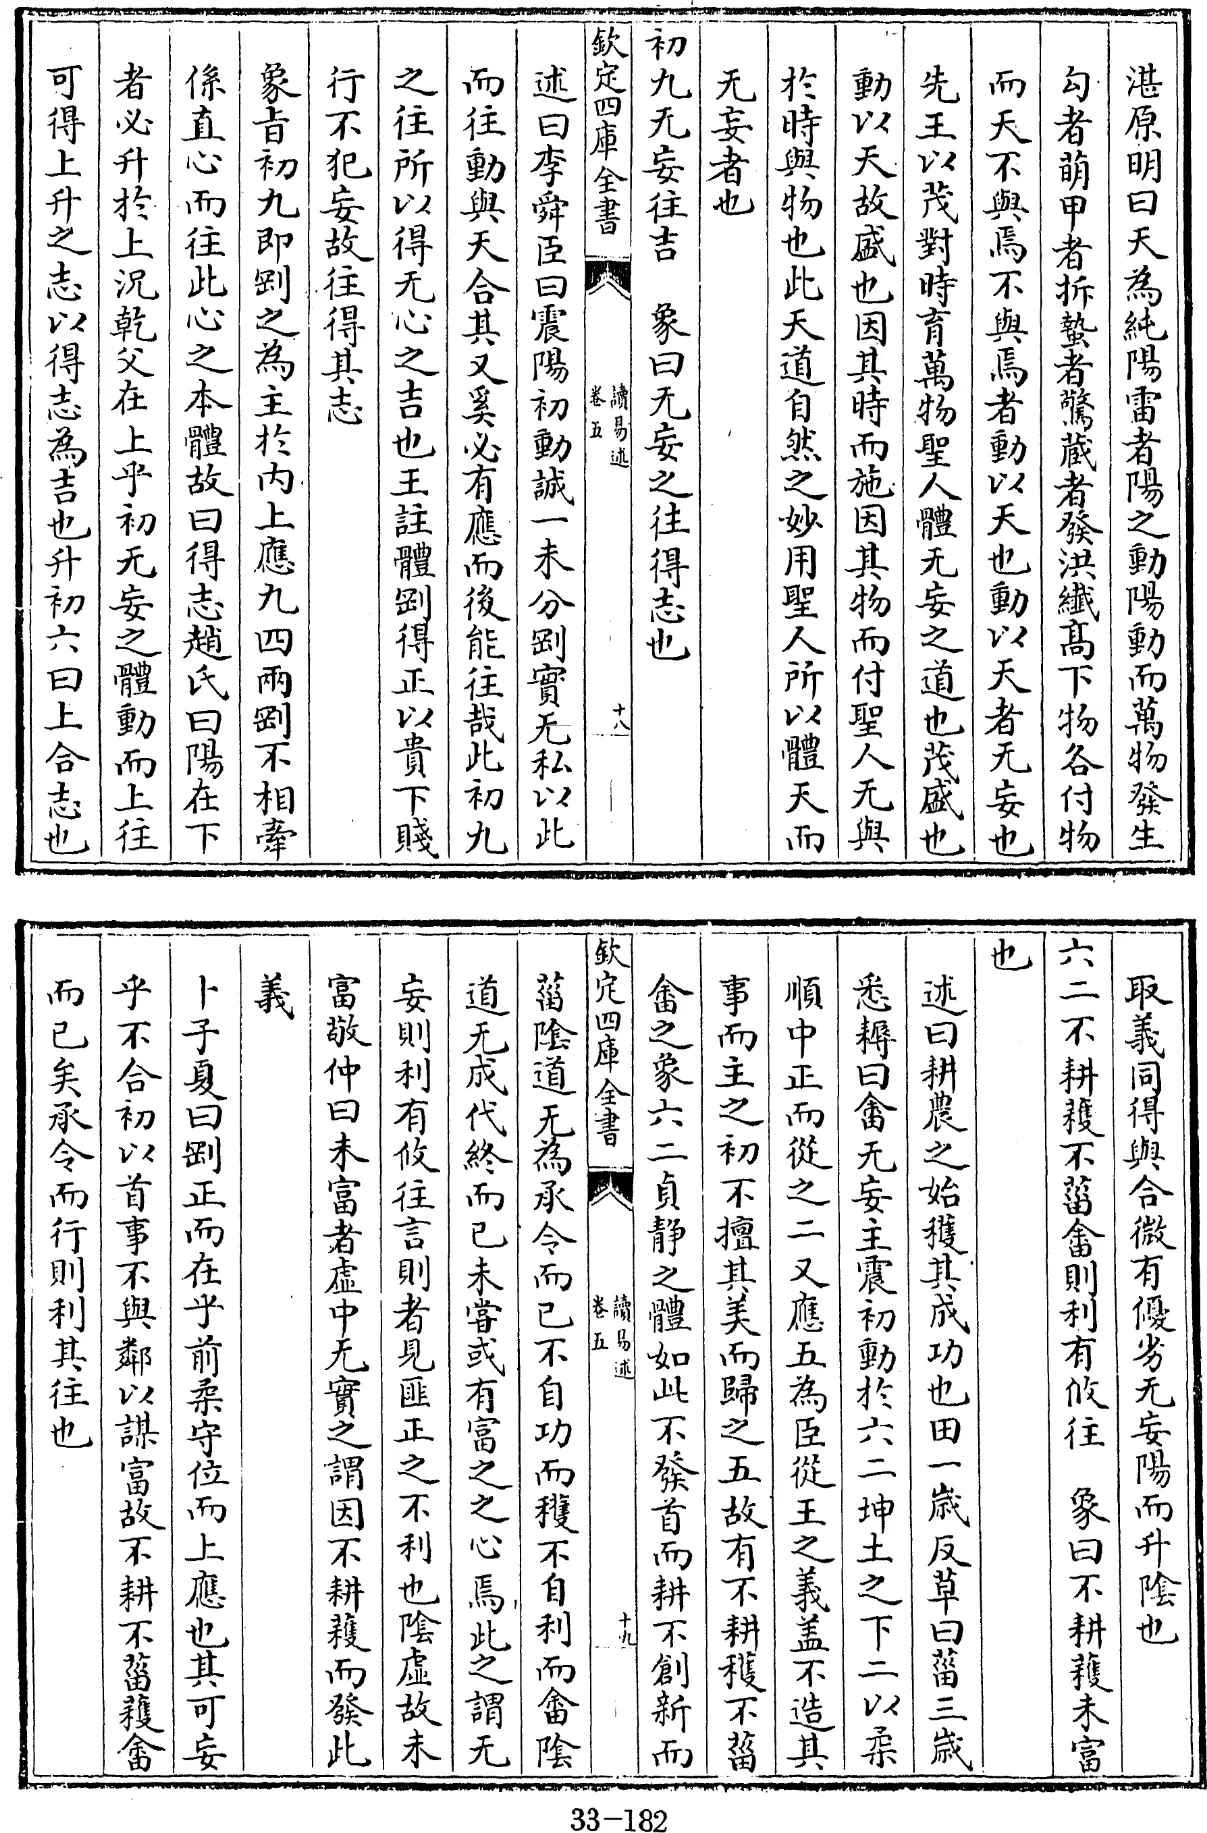 湛原明曰天為純陽雷者陽之動陽動而萬物發生
勾者萌甲者拆蟄者驚蔵者發洪纎髙下物各付物
而天不與焉不與焉者動以天也動以天者无妄也
先王以茂對時育萬物聖人體无妄之道也茂盛也
動以天故盛也因其時而施因其物而付聖人无與
於時與物也此天道自然之妙用聖人所以體天而
无妄者也
初九无妄往吉　象曰无妄之往得志也
欽定四庫全書　讀易述卷五　十八
述曰李舜臣曰震陽初動誠一未分剛實无私以此
而往動與天合其又奚必有應而後能往哉此初九
之往所以得无心之吉也王註體剛得正以貴下賤
行不犯妄故往得其志
象旨初九即剛之為主於内上應九四兩剛不相牽
係直心而往此心之本體故曰得志趙氏曰陽在下
者必升於上況乾父在上乎初无妄之體動而上往
可得上升之志以得志為吉也升初六曰上合志也
取義同得與合微有優劣无妄陽而升陰也
六二不耕穫不菑畬則利有攸往　象曰不耕穫未富
也
述曰耕農之始穫其成功也田一歳反草曰菑三歳
悉耨曰畬无妄主震初動於六二坤土之下二以柔
順中正而從之二又應五為臣從王之義盖不造其
事而主之初不擅其美而歸之五故有不耕穫不菑
畬之象六二貞靜之體如此不發首而耕不創新而
欽定四庫全書　讀易述卷五　十九
菑陰道无為承令而已不自功而穫不自利而畬陰
道无成代終而已未嘗或有富之之心焉此之謂无
妄則利有攸往言則者見匪正之不利也陰虛故未
富敬仲曰未富者虛中无實之謂因不耕穫而發此
義
卜子夏曰剛正而在乎前柔守位而上應也其可妄
乎不合初以首事不與鄰以謀富故不耕不菑穫畬
而已矣承令而行則利其往也
33-182